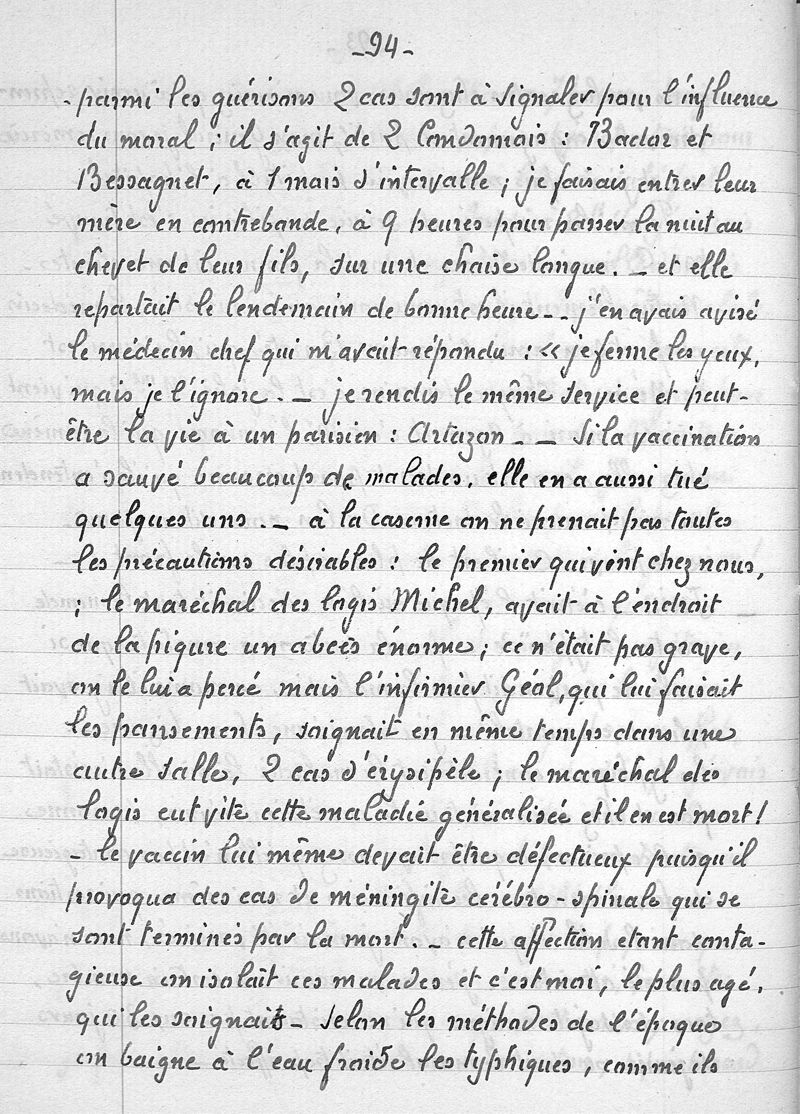 -94-
- parmi les guérisons 2 cas sont à signaler pour l'influence
du moral ; il s'agit de 2 Condomois : Bador et
Bessagnet, à 1 mois d'intervalle ; je faisais entrer leur
mère en contrebande, à 9 heures pour passer la nuit au
chevet de leur fils, sur une chaise longue. _ et elle
repartait le lendemain de bonne heure _ _ j'en avais avisé
le médecin chef qui m'avait répondu : « je ferme les yeux,
mais je l'ignore. _ je rendis le même service et peut-
être la vie à un parisien : Artazon _ _ Si la vaccination
a sauvé beaucoup de malades, elle en a aussi tué
quelques uns. _ à la caserne on ne prenait pas toutes
les précautions désirables : le premier qui vint chez nous,
; le maréchal des logis Michel, avait à l'endroit
de la piqure un abcès énorme ; ce n'était pas grave,
on le lui a percé mais l'infirmier Géol, qui lui faisait
les pansements, soignait en même temps dans une
autre salle, 2 cas d'érysipèle ; le maréchal des
logis eut vite cette maladie généralisée et il en est mort !
- le vaccin lui même devait être défectueux puisqu'il
provoqua des cas de méningite cérébro-spinale qui se
sont terminés par la mort. _ cette affection etant conta-
gieuse on isolait ces malades et c'est moi, le plus agé,
qui les soignait _ selon les méthodes de l'époque
on baigne à l'eau froide les typhiques, comme ils